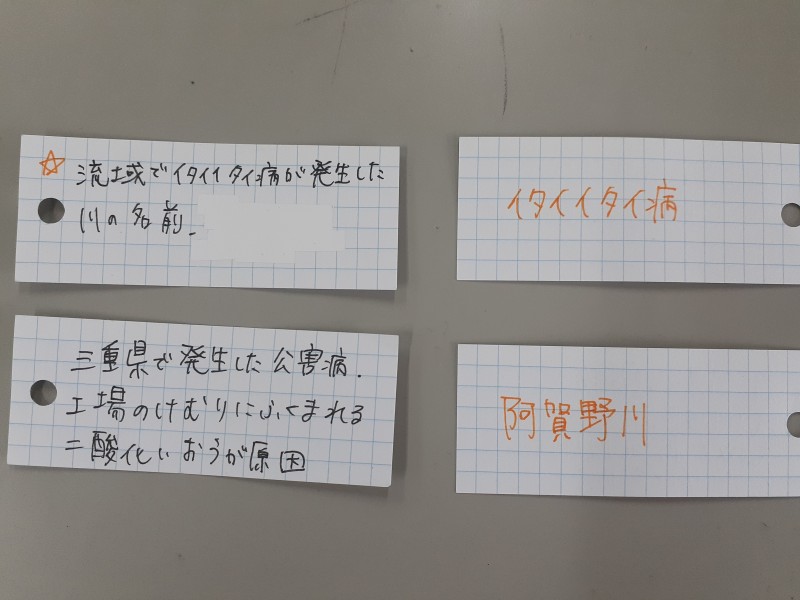 ☆ 流域でイタイイタイ病が発生した
川の名前.
イタイイタイ病
三重県で発生した公害病.
工場のけむりにふくまれる
二酸化いおうが原因
阿賀野川